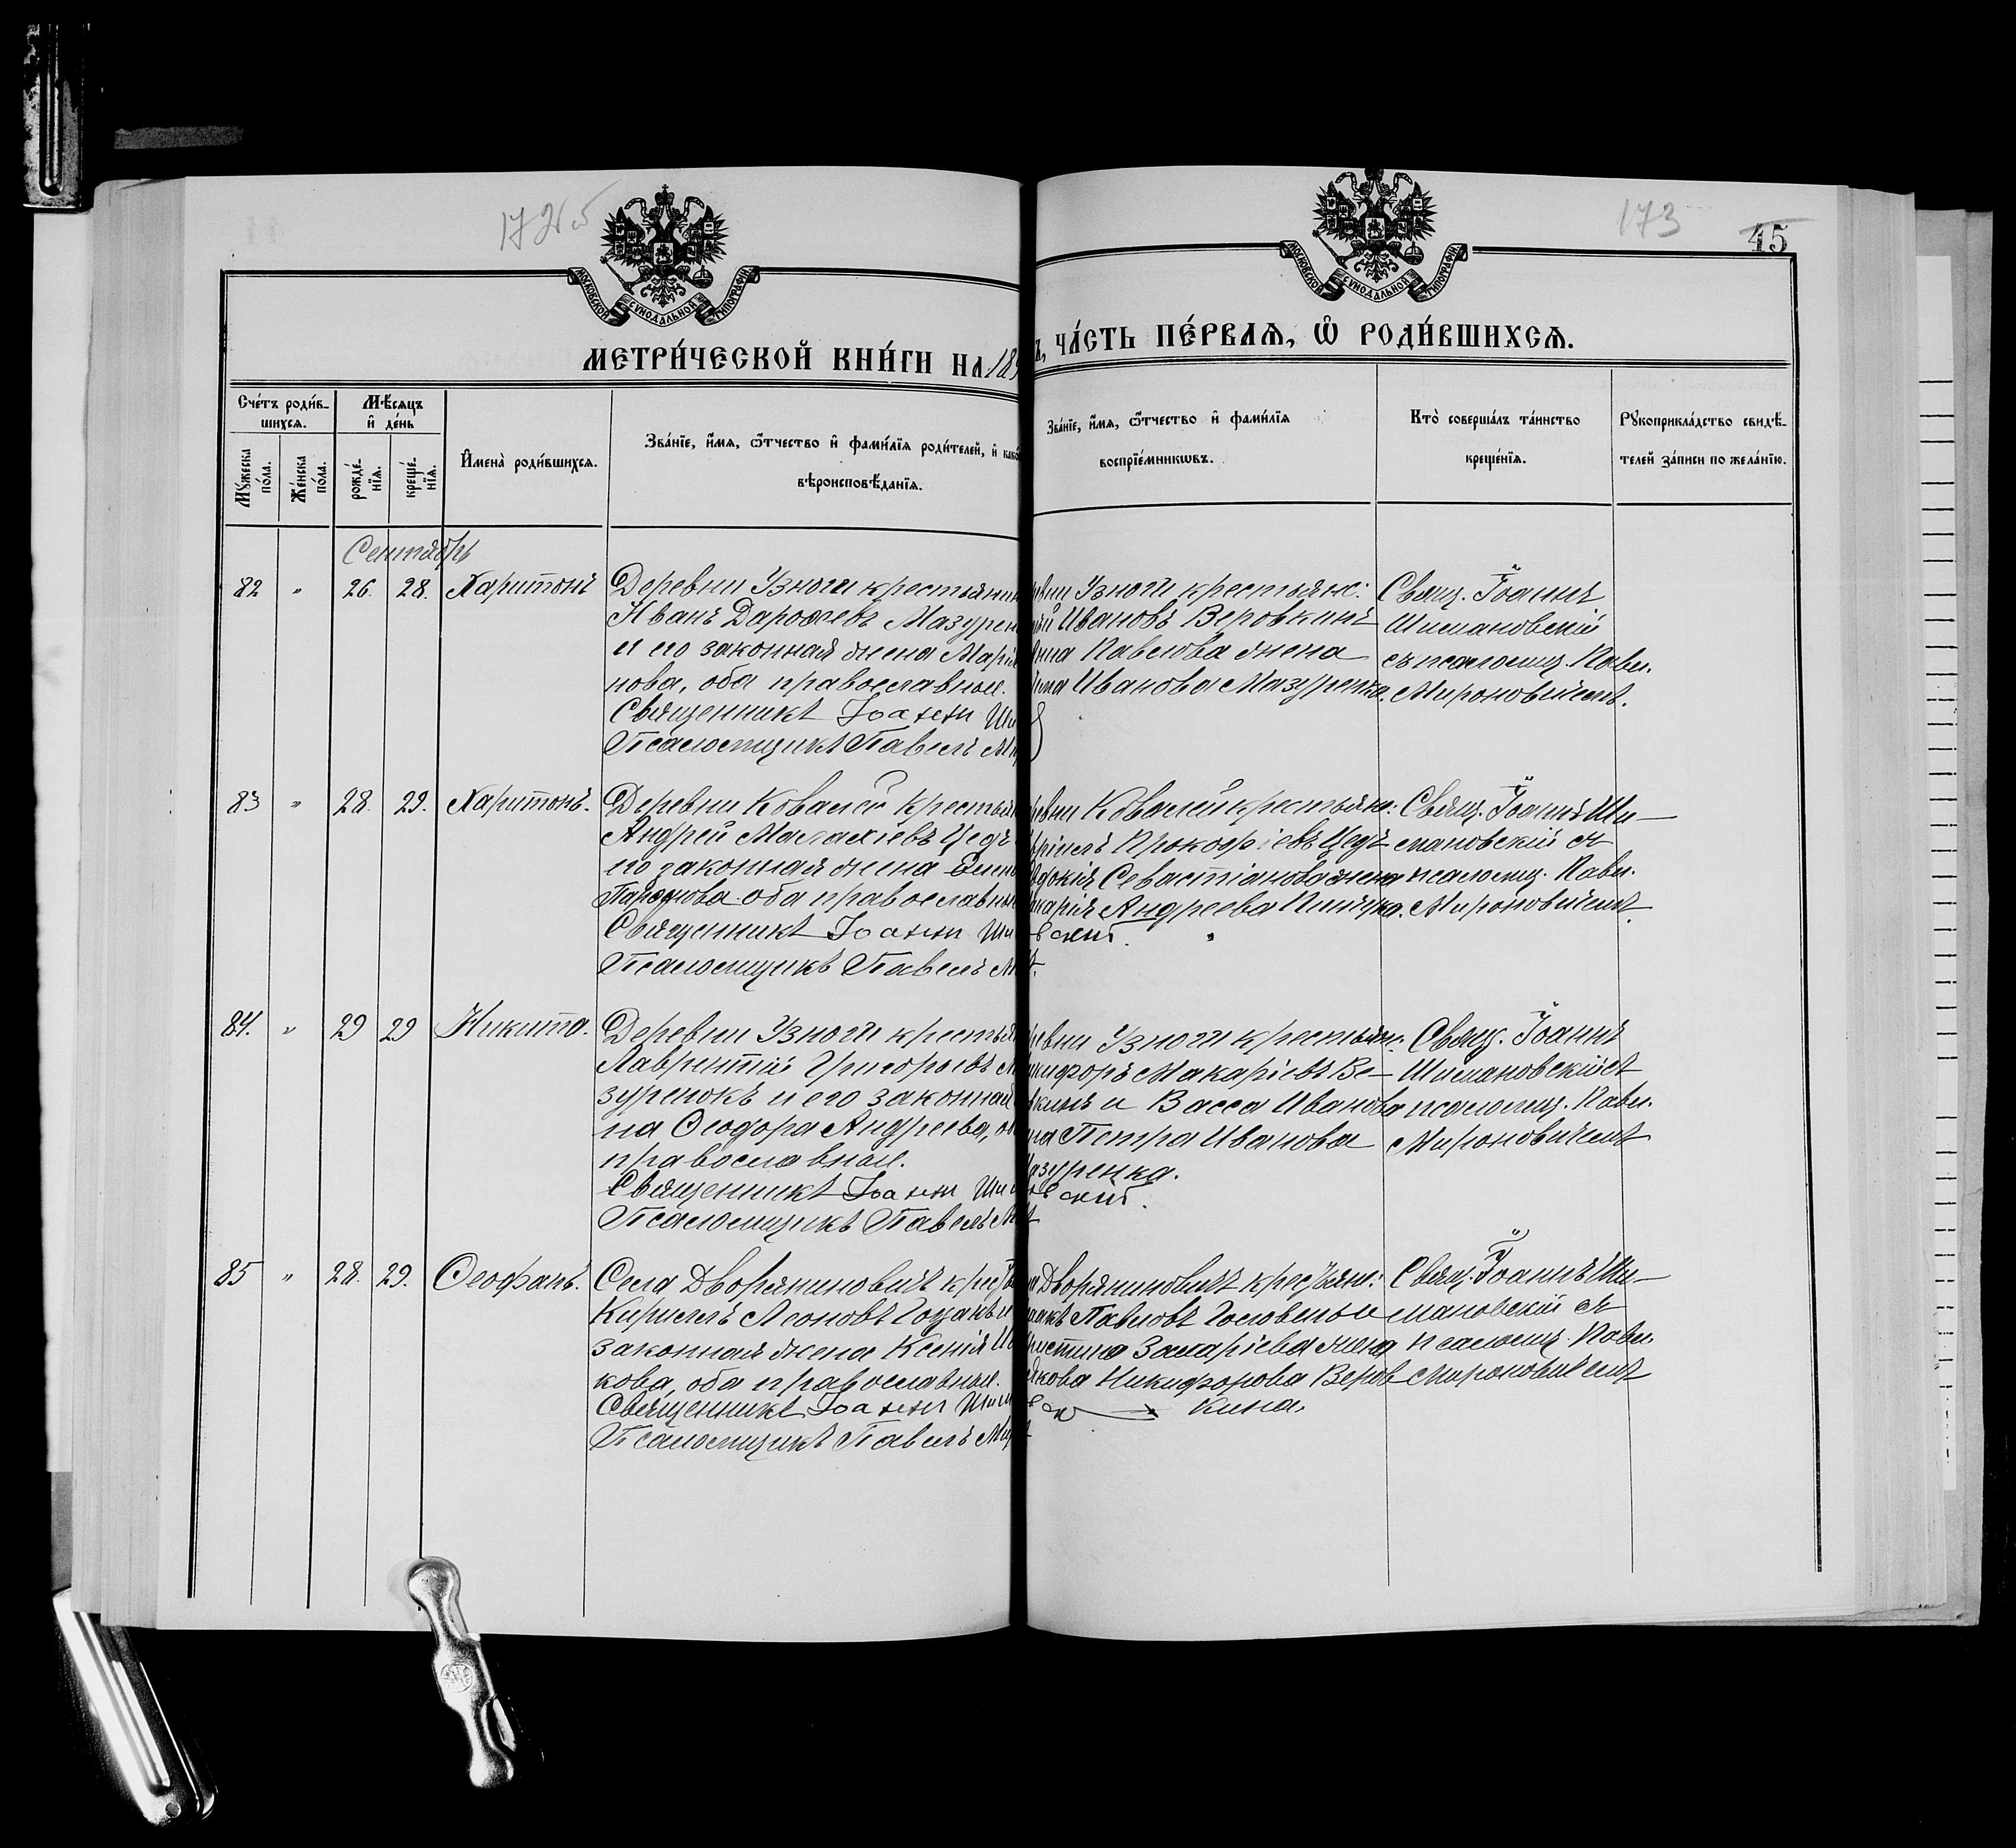 172об
173
45
МОСКОВСКОЙ СУНОДАЛЬНОЙ ТИПОГРАФІИ
МОСКОВСКОЙ СУНОДАЛЬНОЙ ТИПОГРАФІИ
МЕТРИ́ЧЕСКОЙ КНИ́ГИ НА 189
Ъ, ЧА́СТЬ ПЕ́РВАѦ, Ѿ РОДИ́ВШИХСѦ.
Сче́тъ роди́в-
шихсѧ.
Мꙋжеска по́ла.
Же́нска по́ла.
Мѣ́сѧцъ
и҆ де́нь
рожде́-
нїѧ.
креще́-
нїѧ.
И҆мена̀ роди́вшихсѧ.
Зва́нїе, и҆́мѧ, ѻ҆́тчество и҆ фами́лїѧ роди́телей, и҆ како
вѣроисповѣ́данїѧ.
Зва́нїе, и҆́мѧ, ѻ҆́тчество и҆ фами́лїѧ
воспрїе́мникѡвъ.
Кто̀ соверша́лъ та́инство
креще́нїѧ.
Рꙋкоприкла́дство свидѣ́-
телей за́писи по жела́нїю.
Сентябрь
82 " 26. 28. Харитонъ
Деревни Узноги крестьянин
Иванъ Дарофеевъ Мазурен
и его законная жена Марі
нова, оба православные.
Священникъ Іоаннъ Ши
Псаломщикъ Павелъ Ми
евни Узноги крестьян:
Ивановъ Веровкинъ
Павлова жена
Иванова Мазуренка.
Свящ. Іоаннъ
Шимановскій
съ псаломщ. Павл.
Мироновичемъ.
83 " 28. 29. Харитонъ.
Деревни Ковалей крестья
Андрей Малахіевъ Цедъ
его законная жена Елен
оба православные
Священникъ Іоаннъ Ши
Псаломщикъ Павелъ М
евни Ковалей крестьян:
вріилъ Прокофіевъ Цедъ
вдокія Севастіанова жена
карія Андреева
вскій.
Свящ. Іоаннъ Ши-
мановскій съ
псаломщ. Павл.
Мироновичемъ
84. " 29 29 Никита.
Деревни Узноги крестья
Лаврентій Григорьевъ М
зуренокъ и его законная
на Ѳеодора Андреева, об
православные.
Священникъ Іоаннъ Ши
Псаломщикъ Павелъ М
евни Узноги крестьян:
икифоръ Макаріевъ Ве-
вкинъ и Васса Иванова
на Петра Иванова
азуренка.
вскій.
Свящ. Іоаннъ
Шимановскій съ
псаломщ. Павл.
Мироновичемъ
85 " 28. 29. Ѳеофанъ.
Села Дворяниновичъ крестья
Кириллъ Леоновъ Гоцакъ и
законная жена Ксенія И
кова, оба православные.
Священникъ Іоаннъ Шим
Псаломщикъ Павелъ Ми
Дворяниновичъ крестьян:
Павловъ
ристина Захаріева жена
Никифорова Веров
кина.
Свящ. Іоаннъ Ши-
мановскій съ
псаломщ. Павл.
Мироновичемъ